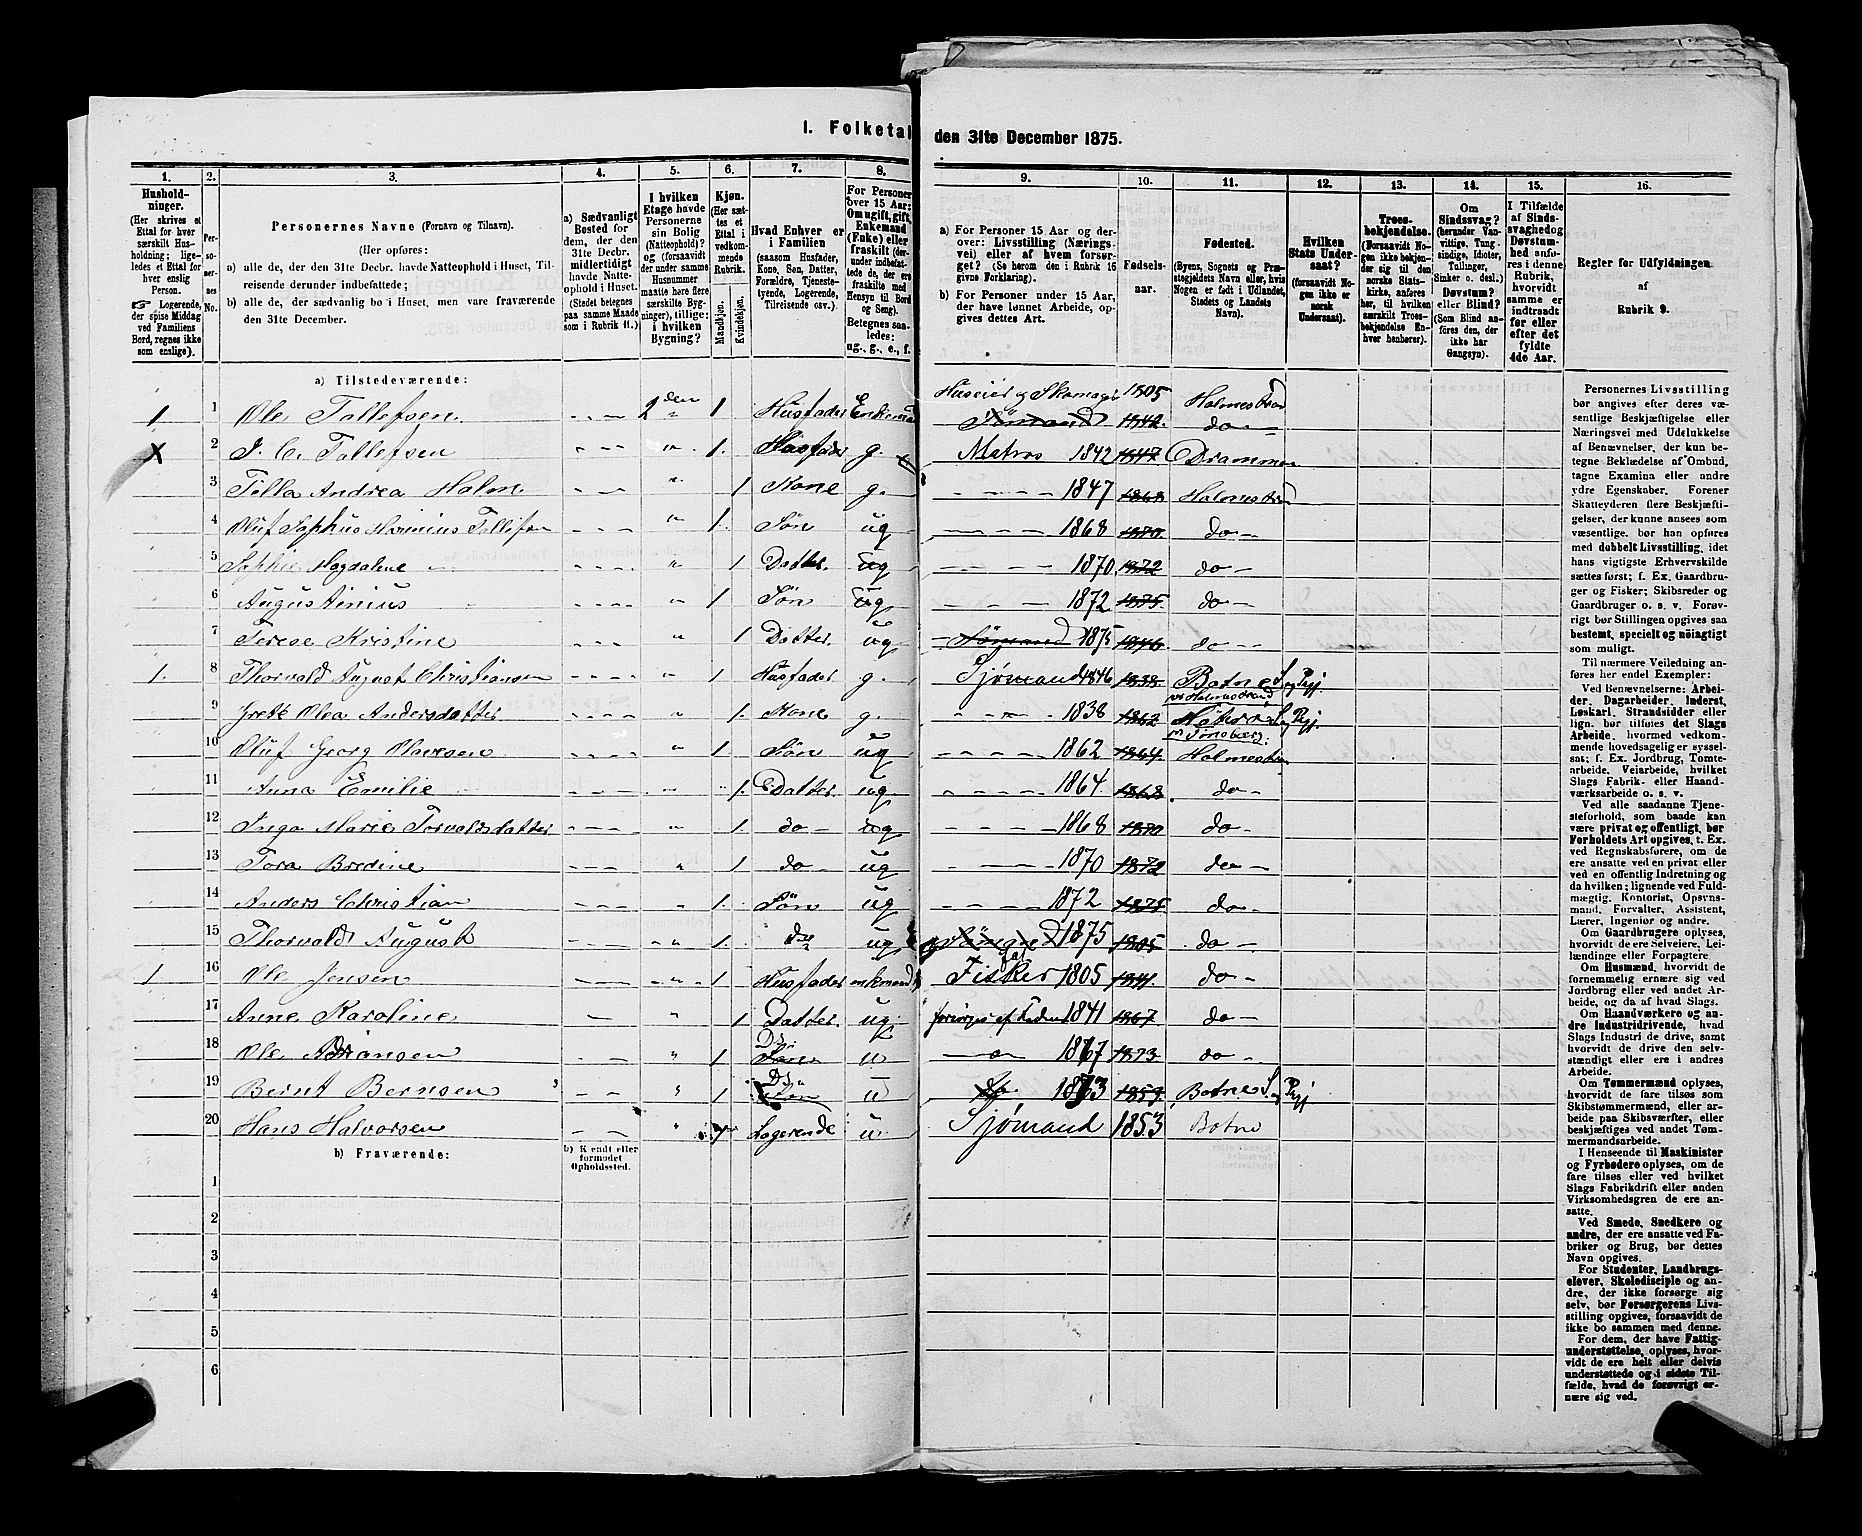 I. Folketal den 31te December 1875.
1. 2. 3. 4. 5. 6. 7. 8. 9. 10. 11. 12. 13. 14. 15. 16.
Hushold-
ninger.
(Her skrives et
Ettal for hver
særskilt Hus-
holdning; lige-
ledes et Ettal for
hver enslig
Person.
☞ Logerende,
der spise Middag
ved Familiens
Bord, regnes ikke
som enslige).
Per-
so-
ner-
nes
No.
Personernes Navne (Fornavn og Tilnavn).
(Her opføres:
a) alle de, der den 31te Decbr. havde Natteophold i Huset, Til-
reisende derunder indbefattede;
b) alle de, der sædvanlig bo i Huset, men vare fraværende
den 31te December.
a) Sædvanligt
Bosted for
dem, der den
31te Decbr.
midlertidigt
havde Natte-
ophold i Huset.
(Stedet betegnes
paa samme Maade
som i Rubrik 11.)
I hvilken
Etage havde
Personerne
sin Bolig
(Natteophold)?
og (forsaavidt
der under samme
Husnummer
maatte høre flere
særskilte Byg-
ninger), tillige:
i hvilken
Bygning?
Kjøn.
(Her sæt-
tes et
Ettal i
vedkom-
mende
Rubrik.)
Mandkjøn.
Kvindekjøn.
Hvad Enhver er
i Familien
(saasom Husfader,
Kone, Søn, Datter,
Forældre, Tjeneste-
tyende, Logerende,
Tilreisende osv.)
For Personer
over 15 Aar:
Om ugift, gift,
Enkemand
(Enke) eller
fraskilt (der-
under indbefat-
tede de, der ere
fraskilte med
Hensyn til Bord
og Seng).
Betegnes saa-
ledes:
ug., g., e., f.
a) For Personer 15 Aar og der-
over: Livsstilling (Nærings-
vei) eller af hvem forsør-
get? (Se herom den i Rubrik 16
givne Forklaring).
b) For Personer under 15 Aar,
der have lønnet Arbeide, op-
gives dettes Art.
Fødsels-
aar.
Fødested.
(Byens, Sognets og Præ-
stegjeldets Navn eller, hvis
Nogen er født i Udlandet,
Stedets og Landets
Navn).
Hvilken
Stats Under-
saat?
(forsaavidt No-
gen ikke er
norsk
Undersaat).
Troes-
bekjendelse.
(Forsaavidt No-
gen ikke bekjen-
der sig til den
norske Stats-
kirke, anføres
her, til hvilket
særskilt Troes-
bekjendelse En-
hver henhører).
Om
Sindssvag?
(herunder Van-
vittige, Tung-
sindige, Idioter,
Tullinger,
Sinker o. desl.)
Døvstum?
eller Blind?
(Som Blind an-
føres den, der
ikke har
Gangsyn).
I Tilfælde
af Sinds-
svaghed og
Døvstum-
hed anføres
i denne
Rubrik,
hvorvidt
samme er
indtraadt
før eller
efter det
fyldte
4de Aar.
Regler for Udfyldningen
af
Rubrik 9.
a) Tilstedeværende:
1 1 Ole Tollefsen - - - 2den 1 Husfader Enkemand Huseier og Skomager 1805 Holmestrand
Sømand 1842
X 2 J. C. Tollefsen - - - " 1. Husfader g. Matros 1842 1847 Drammen
do -
3 Tilla Andrea Holm - - - " 1 Kone g. - - - 1847 1868 Holmestrand
4 Oluf Sophus Marinius Tollefsen - - - " 1. Søn ug - - - 1868 1870 do -
5 Sophie Magdalene - - - - " 1 Datter ug - - - 1870 1872 do -
6 Augustinius - - - " 1 Søn ug - - - 1872 1875 do -
7 Terese Kristine - - - " 1 Datter ug Sømand 1875 1846 do -
1. 8 Thorvald August Christiansen - - - " 1 Husfader g. Sjømand 1846 1838 Botne S og Prgj.
ved Holmestrand
9 Grete Olea Andersdatter - - - " 1. Kone g. - - - 1838 1862 S og Prgj.
Tønsberg.
10 Oluf Georg Olavesen - - - " 1 Søn ug - - - 1862 1864 Holmestrand
11 Anna Emilie - - - " 1. Datter ug - - - 1864. 1868 do -
12 Inga Marie Torvaldsdatter - - - " 1. do - ug - - - 1868 1870 do -
13 Tora Bredine - - - " 1 do - ug - - - 1870 1872 do -
14 Anders Christian - - - " 1. Søn ug - - - 1872 1875 do -
15 Thorvald August - - - " 1. do ug 1875 1805 do -
1 16 Ole Jensen - - - " 1 Husfader enkmand Fisker 1805 1841 do -
17 Anne Karoline - - " 1 Datter ug forsørges af Faderen 1841 1867 do -
18 Ole Adriansen - - " 1 Ds. Søn u - " - 1867 1873 do -
19 Bernt Bernsen " - - " 1 Ds. Søn u do. 1873 1853 Botne S og Prgj
20 Hans Halvorsen - - " Logerende u. Sjømand 1853 Botne
b) Fraværende:
b) Kjendt eller
formodet
Opholdssted.
1
2
3
4
5
6
Personernes Livsstilling
bør angives efter deres væ-
sentlige Beskjæftigelse eller
Næringsvei med Udelukkelse
af Benævnelser, der kun be-
tegne Beklædelse af Ombud,
tagne Examina eller andre
ydre Egenskaber. Forener
Skatteyderen flere Beskjæfti-
gelser, der kunne ansees som
væsentlige, bør han opføres
med dobbelt Livsstilling, idet
hans vigtigste Erhvervskilde
sættes først; f. Ex. Gaardbru-
ger og Fisker; Skibsreder og
Gaardbruger o. s. v. Forøv-
rigt bør Stillingen opgives saa
bestemt, specielt og nøiagtigt
som muligt.
Til nærmere Veiledning an-
føres her endel Exempler:
Ved Benævnelserne: Arbei-
der, Dagarbeider, Inderst,
Løskarl, Strandsidder eller
lign. bør tilføies det Slags
Arbeide, hvormed vedkom-
mende hovedsagelig er syssel-
sat; f. Ex. Jordbrug, Tomte-
arbeide, Veiarbeide, hvilket
Slags Fabrik- eller Haand-
værksarbeide o. s. v.
Ved alle saadanne Tjene-
steforhold, som baade kan
være privat og offentligt, bør
Forholdets Art opgives, t. Ex.
ved Regnskabsførere, om de
ere ansatte ved en privat eller
ved en offentlig Indretning og
da hvilken; lignende ved Fuld-
mægtig, Kontorist, Opsyns-
mand, Forvalter, Assistent,
Lærer, Ingeniør og andre.
Om Gaardbrugere oplyses,
hvorvidt de ere Selveiere, Lei-
lændinge eller Forpagtere.
Om Husmænd, hvorvidt de
fornemmelig ernære sig ved
Jordbrug eller ved andet Ar-
beide, og da af hvad Slags.
Om Haandværkere og an-
dre Industridrivende, hvad
Slags Industri de drive, samt
hvorvidt de drive den selv-
stændigt eller ere i andres
Arbeide.
Om Tømmermænd oplyses,
hvorvidt de fare tilsøs som
Skibstømmermænd, eller ar-
beide paa Skibsværfter, eller
beskjæftiges ved andet Tøm-
mermandsarbeide.
I Henseende til Maskinister
og Fyrbødere oplyses, om de
fare tilsøs eller ved hvilket
Slags Fabrikdrift eller anden
Virksomhedsgren de ere an-
satte.
Ved Smede, Snedkere og
andre, der ere ansatte ved Fa-
briker og Brug, bør dettes
Navn opgives.
For Studenter, Landbrugs-
elever, Skoledisciple og an-
dre, der ikke forsørge sig
selv, bør Forsørgerens Livs-
stilling opgives, forsaavidt de
ikke bo sammen med denne.
For dem, der have Fattig-
understøttelse, oplyses, hvor-
vidt de ere helt eller delvis
understøttede og i sidste Til-
fælde, hvad de forøvrigt er-
nære sig ved.